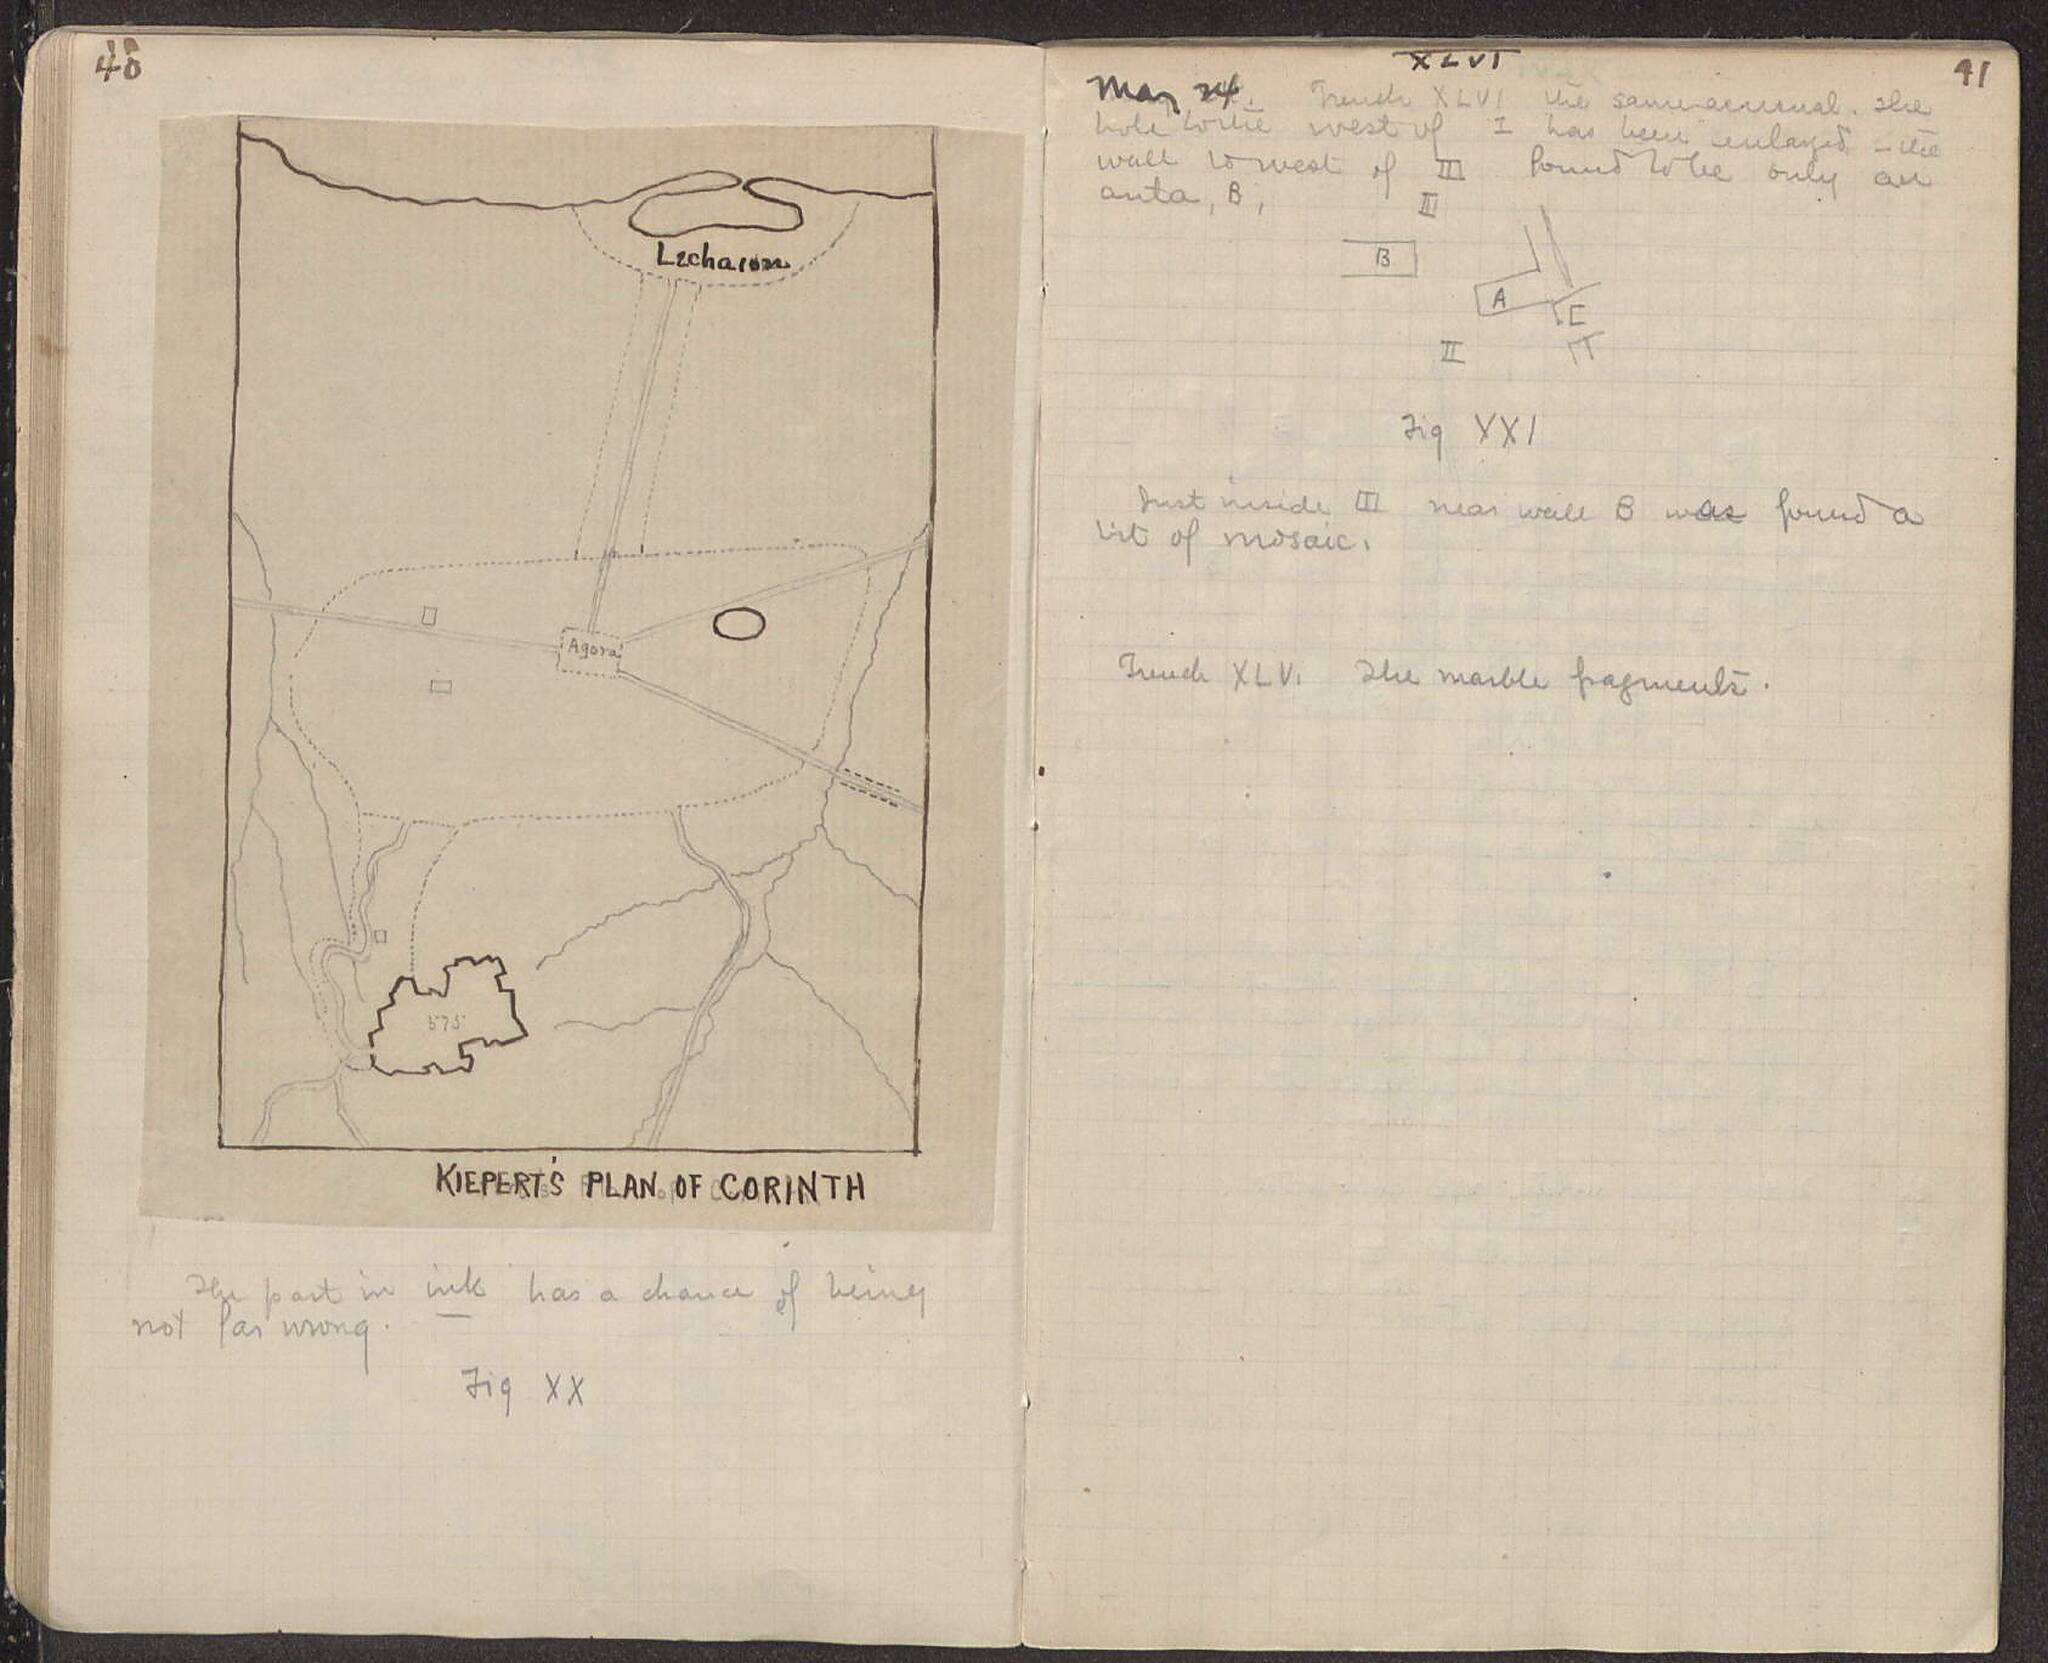 40
Lechaion
Agora
575
KIEPERT'S PLAN OF CORINTH
The part in ink has a chance of being
not far wrong.
Fig XX
XLVI
41
May 24. Trench XLVI the same as usual. The
hole to the west of I has been enlarged – the
wall to west of III found to be only an
anta, B,
III
B
A
C
II
Fig XXI
Just inside III near wall B was found a
bit of mosaic.
Trench XLV. The marble fragments.